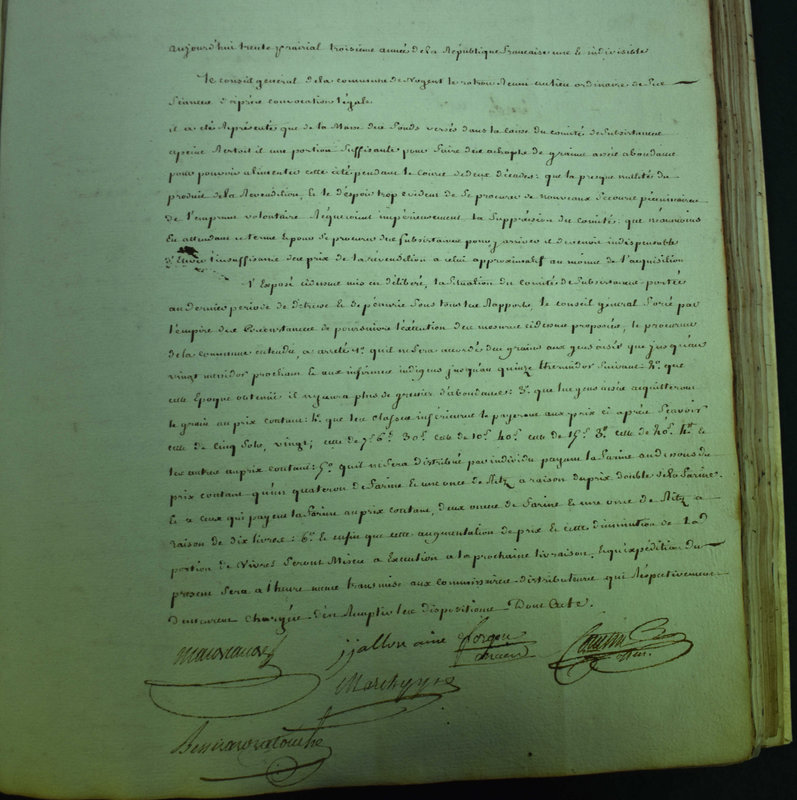 aujourd'hui trente prairial troisieme année de la République francaise une & indivisible
Le conseil general de la commune de Nogent le rotrou Reuni au lieu ordinaire de ses
séances d'après convocation légale
il a eté Représenté que de la Masse des fonds versés dans la caisse du comité de Subsistances
apeine Restoit il une portion suffisante pour faire des achapts de grains assés abondants
pour pouvoir alimenter cette cité pendant le cours de deux décades: que la presque nullité du
produit de la Revendition, & le d'espoir trop evident de se procurer de nouveaux secours pécuniaires
de l'emprunt volontaire Réquéroient impérieusement la suppression du comité: que néanmoins
En attendant ce terme & pour se procurer des subsistances pour y arriver il devenoit indispensable
d' l'insuffisance du prix de la revendition a celui approximatif au moins de l'acquisition
L'Exposé cidessus mis en délibéré, la situation du comité de Subsistances portée
au dernier periode de détresse & de pénurie sous tous les Rapports, le conseil general forcé par
l'empire des Circonstances de poursuivre l'éxécution des mesures cidessus proposées, le procureur
de la commune entendu, a arrêté 1º qu'il ne sera accordé des grains aux gens aisés que jusqu'au
vingt messidor prochain & aux inférieurs indigens jusqu'au quinze thermidor suivant: 2º que
cette Epoque obtenue il n'y aura plus de grenier d'abondance: 3º que les gens aisés acquitteront
le grain au prix coutant: 4º que les classes inférieures le payeront aux prix ci après Sçavoir
celle de cinq sols, vingt; celle de 7s 6d 30s celle de 10s 40s celle de 15s 3# celle de 20s 4# &
les autres au prix coutant: 5º qu'il ne sera distribué par individu payant la farine au dessous du
prix coutant qu'un quateron de farine & une once de Ritz a raison du prix double de la farine.
& a ceux qui payent la farine au prix coutant, deux onces de farine & une once de Ritz a
raison de dix livres: 6º & enfin que cette augmentation de prix & cette diminution de lad
portion de Vivres seront Mises a Execution a la prochaine livraison, & qu'expédition du
present sera a l'heure meme transmise aux commissaires distributeurs qui Réspectivement
demeurent chargés d'en Remplir les dispositions. Dont Acte.
jjallon ainé